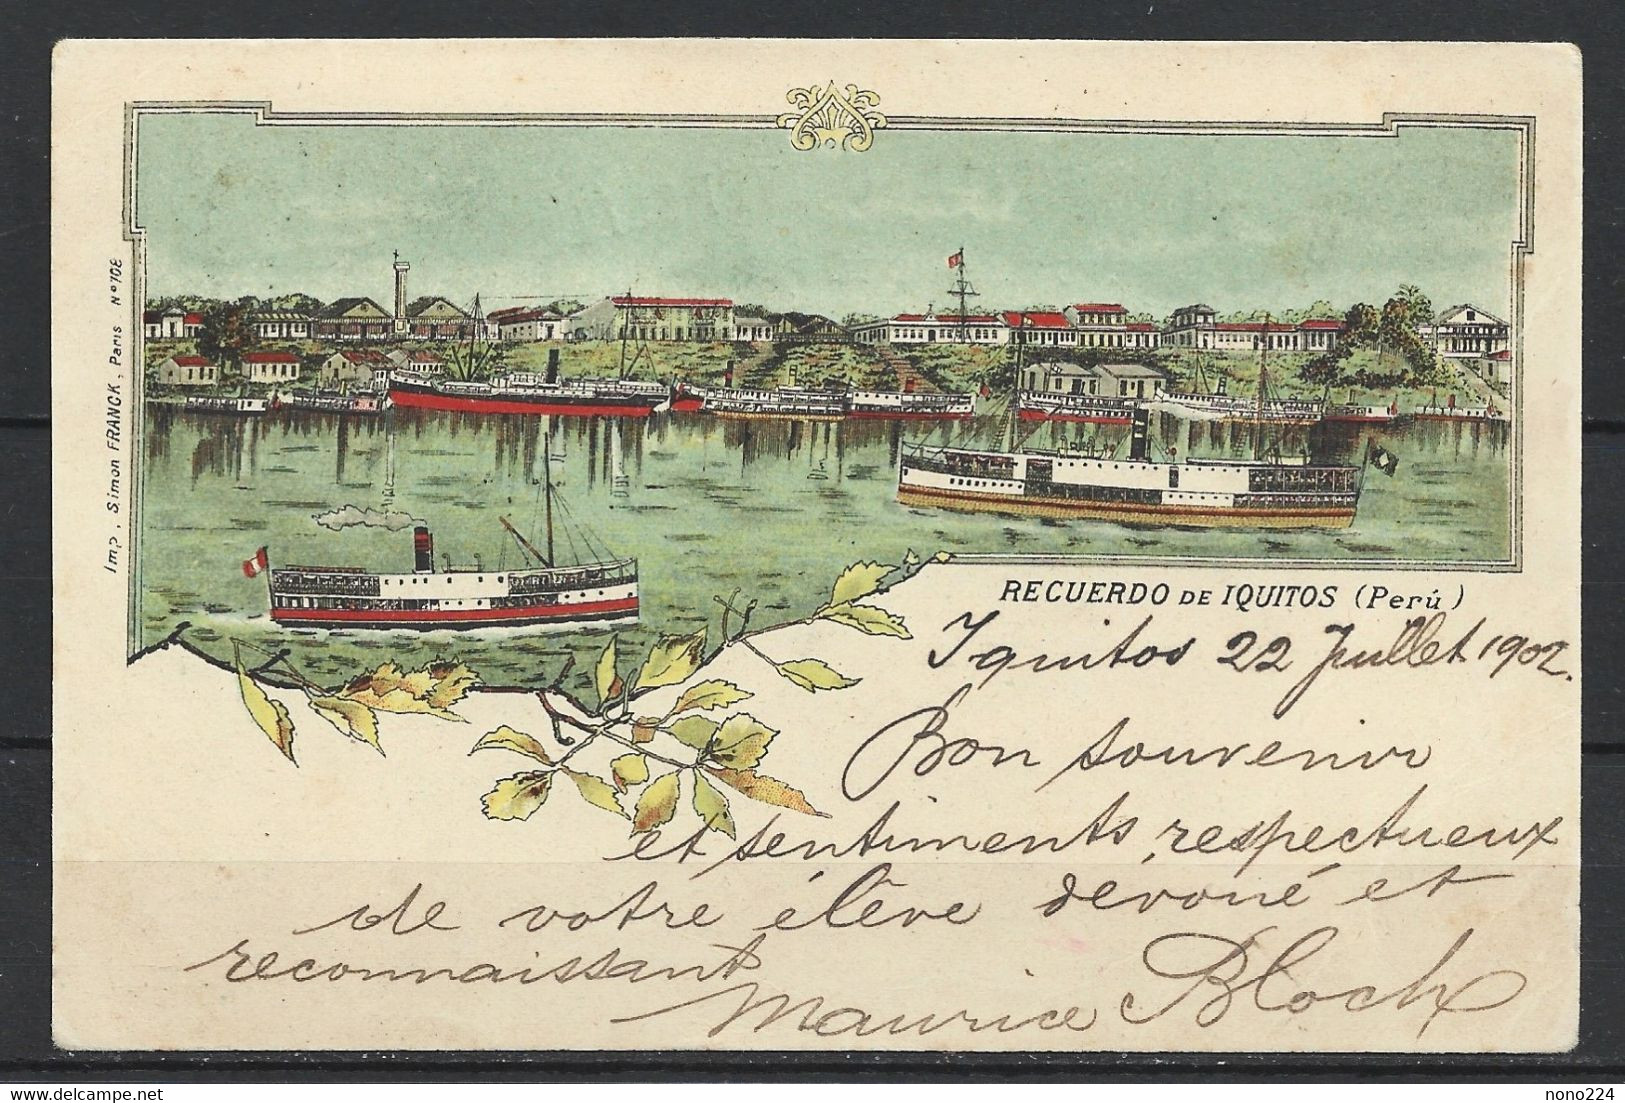 Imp. Simon FRANCK, Paris Nº 108
RECUERDO DE IQUITOS (Perú)
Iquitos 22 Juillet 1902.
Bon souvenir
et sentiments respectueux
de votre élève dévoué et
reconnaissant
Maurice Bloch
www.delcampe.net
nono224